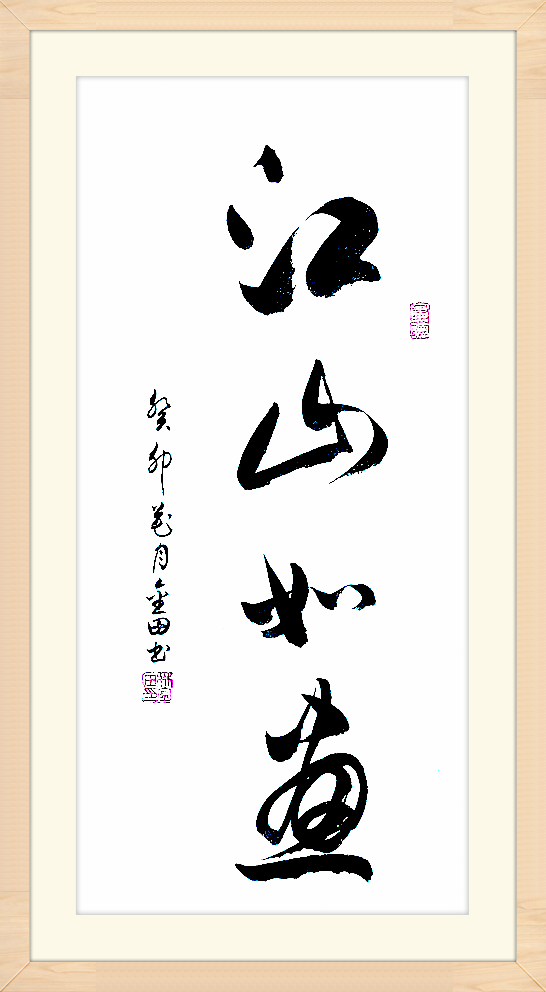 江山如画
癸卯花月金田书